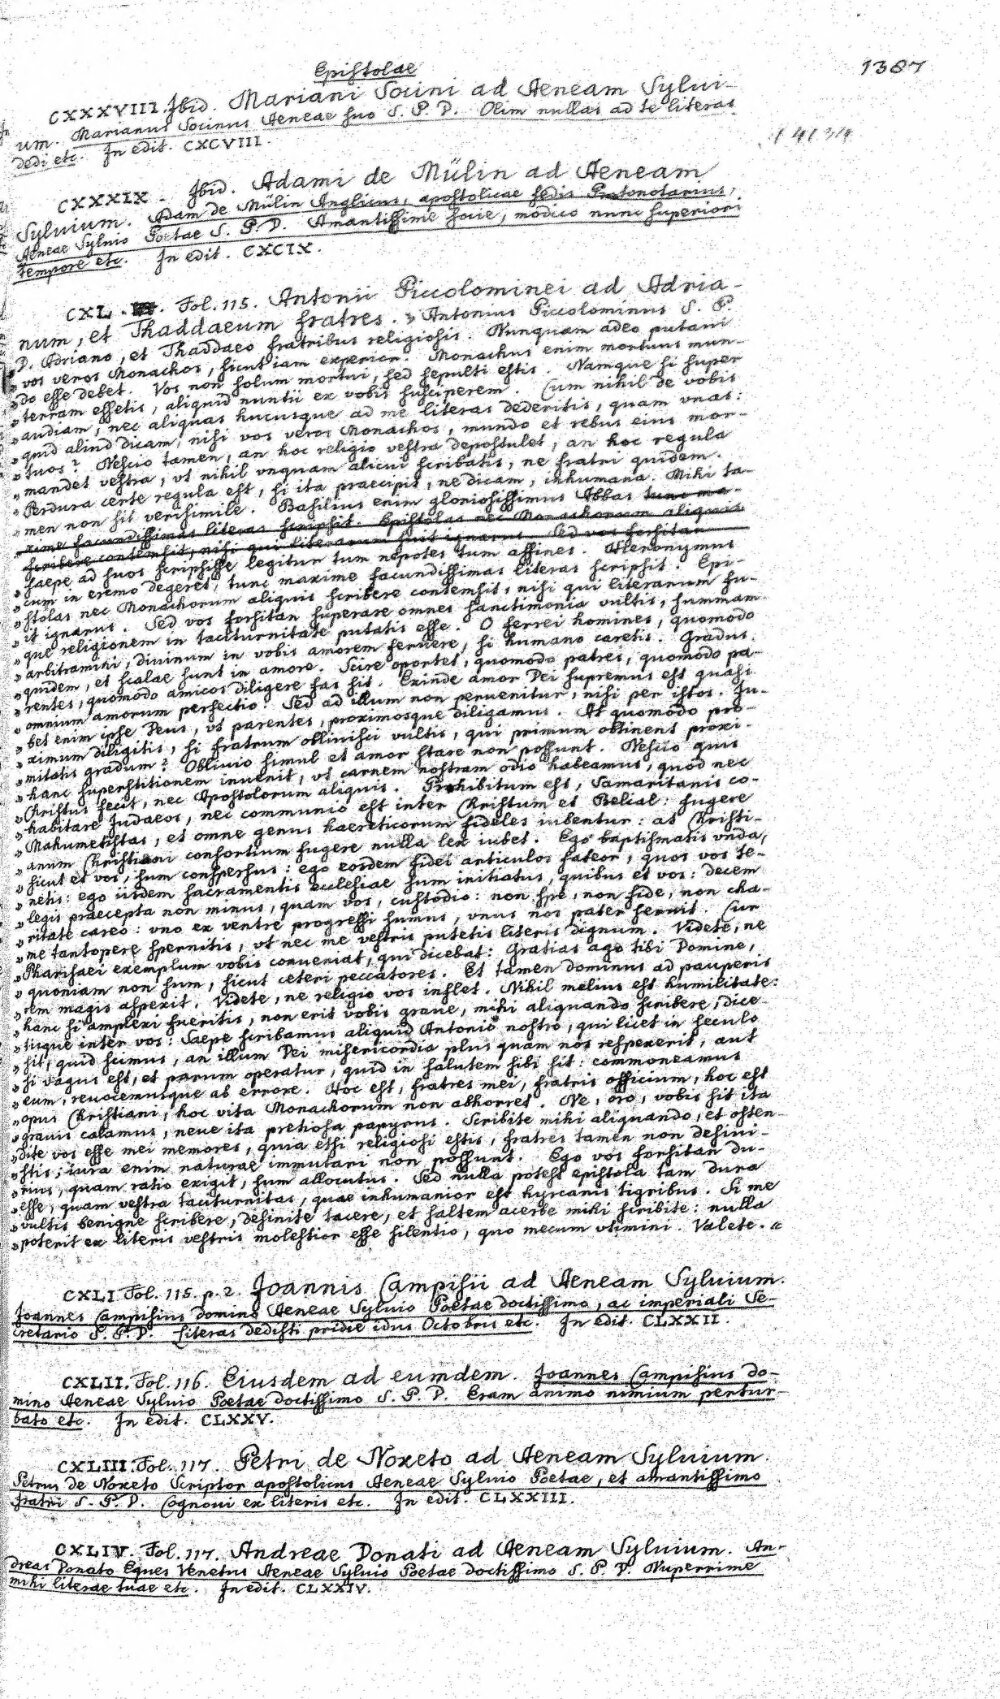 Epistolae
1387
CXXXVIII. Ibid. Mariani Socini ad Aeneam Sylvi-
um. Marianus Socinus Aeneae suo S. P. D. Olim nullas ad te literas
dedi etc. In edit. CXCVIII.
CXXXIX. Ibid. Adami de Mülin ad Aeneam
Sylvium. Adam de Mülin Anglicus, apostolicae sedis Protonotarius,
Aeneae Sylvio Poetae S. P. D. Amantissime socie, modico nunc superiori
tempore etc. In edit. CXCIX.
CXL. Fol. 115. Antonii Piccolominei ad Adria-
num, et Thaddaeum fratres. » Antonius Piccolominus S. P.
D. Adriano, et Thaddaeo fratribus religiosis. Nunquam adeo putavi
» vos veros Monachos, sicut iam experior. Monachus enim mortuus mun-
» do esse debet. Vos non solum mortui, sed sepulti estis. Namque si super
» terram essetis, aliquid nuntii ex vobis susciperem. Cum nihil de vobis
» audiam, nec aliquas hucusque ad me literas dederitis, quam unas:
» quid aliud dicam, nisi vos veros Monachos, mundo et rebus eius mor-
» tuos? Nescio tamen, an hoc religio vestra depostulet, an hoc regula
» mandet vestra, ut nihil unquam alicui scribatis, ne fratri quidem.
» Perdura certe regula est, si ita praecipit, ne dicam, inhumana. Mihi ta-
» men non fit verisimile. Basilius enim gloriosissimus Abbas tunc ma-
xime facundissimas literas scripsit. Epistolas nec Monachorum aliquis
scribere contemsit, nisi qui literarum fuit ignarus. Sed vos forsitan
» saepe ad suos scripsisse legitur tum nepotes tum affines. Hieronymus
» cum in eremo degeret, tunc maxime facundissimas literas scripsit. Epi-
» stolas nec Monachorum aliquis scribere contemsit, nisi qui literarum fu-
» it ignarus. Sed vos forsitan superare omnes sanctimonia vultis, summam-
» que religionem in taciturnitate putatis esse. O ferrei homines, quomodo
» arbitramini, divinum in vobis amorem fervere, si humano caretis. Gradus
» quidem, et scalae sunt in amore. Scire oportet, quomodo patres, quomodo pa-
» rentes, quomodo amicos diligere fas sit. Exinde amor Dei supremus est quasi
» omnium amorum perfectio. Sed ad illum non pervenitur, nisi per istos. Ju-
» bet enim ipse Deus, ut parentes, proximosque diligamus. At quomodo pro-
» ximum diligitis, si fratrum oblivisci vultis, qui primum obtinent proxi-
» mitatis gradum? Oblivio simul et amor stare non possunt. Nescio quis
» hanc superstitionem invenit, ut carnem nostram odio habeamus, quod nec
» Christus fecit, nec Apostolorum aliquis. Prohibitum est, Samaritanis co-
» habitare Judaeos, nec communio est inter Christum et Belial: fugere
» Mahumetistas, et omne genus haereticorum fideles iubentur: at Christi-
» anum Christiani consortium fugere nulla lex iubet. Ego baptismatis unda,
» sicut et vos, sum conspersus: ego eosdem fidei articulos fateor, quos vos te-
» netis: ego iisdem sacramentis ecclesiae sum initiatus, quibus et vos: decem
» legis praecepta non minus, quam vos, custodio: non spe, non fide, non cha-
» ritate careo: uno ex ventre progressi sumus, unus nos pater seruit. Cur
» me tantopere spernitis, ut nec me vestris putetis literis dignum. Videte, ne
» Pharisaei exemplum vobis conveniat, qui dicebat: Gratias ago tibi Domine,
» quoniam non sum, sicut ceteri peccatores. Et tamen dominus ad pauperis
» rem magis aspexit. Videte, ne religio vos inflet. Nihil melius est humilitate:
» hanc si amplexi fueritis, non erit vobis grave, mihi aliquando scribere, dice-
» tisque inter vos: Saepe scribamus aliquid Antonio nostro, qui licet in seculo
» sit, quid scimus, an illum Dei misericordia plus quam nos respexerit, aut
» si vagus est, et parum operatur, quid in salutem sibi sit: commoneamus
» eum, revocemusque ab errore. Hoc est, fratres mei, fratris officium, hoc est
» opus Christiani, hoc vita Monachorum non abhorret. Ne, oro, vobis sit ita
» gravis calamus, neve ita pretiosa papyrus. Scribite mihi aliquando, et osten-
» dite vos esse mei memores, quia etsi religiosi estis, fratres tamen non desivi-
» stis, iura enim naturae immutari non possunt. Ego vos forsitan du-
» rius, quam ratio exigit, sum allocutus. Sed nulla potest epistola tam dura
» esse, quam vestra taciturnitas, quae inhumanior est hyrcanis tigribus. Si me
» vultis benigne scribere, desinite tacere, et saltem acerbe mihi scribite: nulla
» poterit ex literis vestris molestior esse silentio, quo mecum utimini. Valete. «
CXLI Fol. 115. p. 2. Joannis Campisii ad Aeneam Sylvium.
Joannes Campisius domino Aeneae Sylvio Poetae doctissimo, ac imperiali Se-
cretario S. P. D. Literas dedisti pridie idus Octobris etc. In edit. CLXXII.
CXLII. Fol. 116. Eiusdem ad eumdem. Joannes Campisius do-
mino Aeneae Sylvio Poetae doctissimo S. P. D. Eram animo nimium pertur-
bato etc. In edit. CLXXV.
CXLIII. Fol. 117. Petri de Noxeto ad Aeneam Sylvium.
Petrus de Noxeto Scriptor apostolicus Aeneae Sylvio Poetae, et amantissimo
fratri S. P. D. Cognovi ex literis etc. In edit. CLXXIII.
CXLIV. Fol. 117. Andreae Donati ad Aeneam Sylvium. An-
dreas Donato Eques Venetus Aeneae Sylvio Poetae doctissimo S. P. D. Nuperrime
mihi literae tuae etc. In edit. CLXXIV.